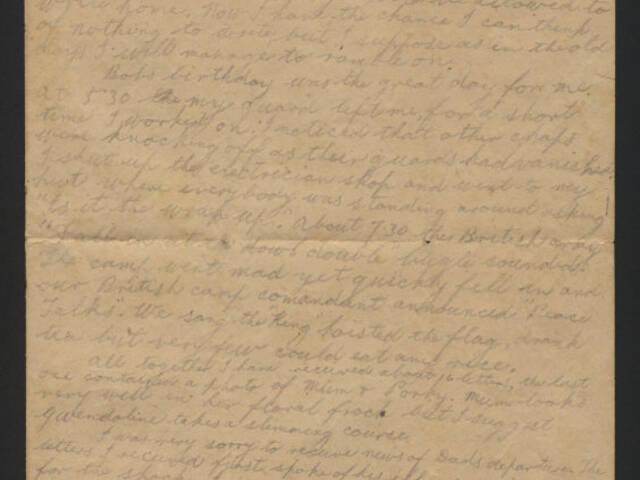 write home. Now I have the chance I can think
of nothing to write but I suppose as in the old
days I will manage to ramble on.
Bobs birthday was the great day for me.
At 5.30 the my guard left me, for a short
time I worked on; I noticed that other chaps
were knocking off as their guards had vanished.
I shut up the electrician shop and went to my
hut where everybody was standing around asking
"Is it the wrap up". About 7.30 the British army
"Fall in at the double" bugle sounded.
The camp went mad yet quickly fell in and
our British camp comandant announced "Peace
Talks". We sang the "King" hoisted the flag, drank
tea but very few could eat any rice.
All together I have received about 16 letters, the last
one contained a photo of Mum & Porky. Mum looks
very well in her floral frock but I suggest
Gwendoline takes a slimming course.
I was very sorry to receive news of Dads departure. The
letters I received first spoke of his
for the